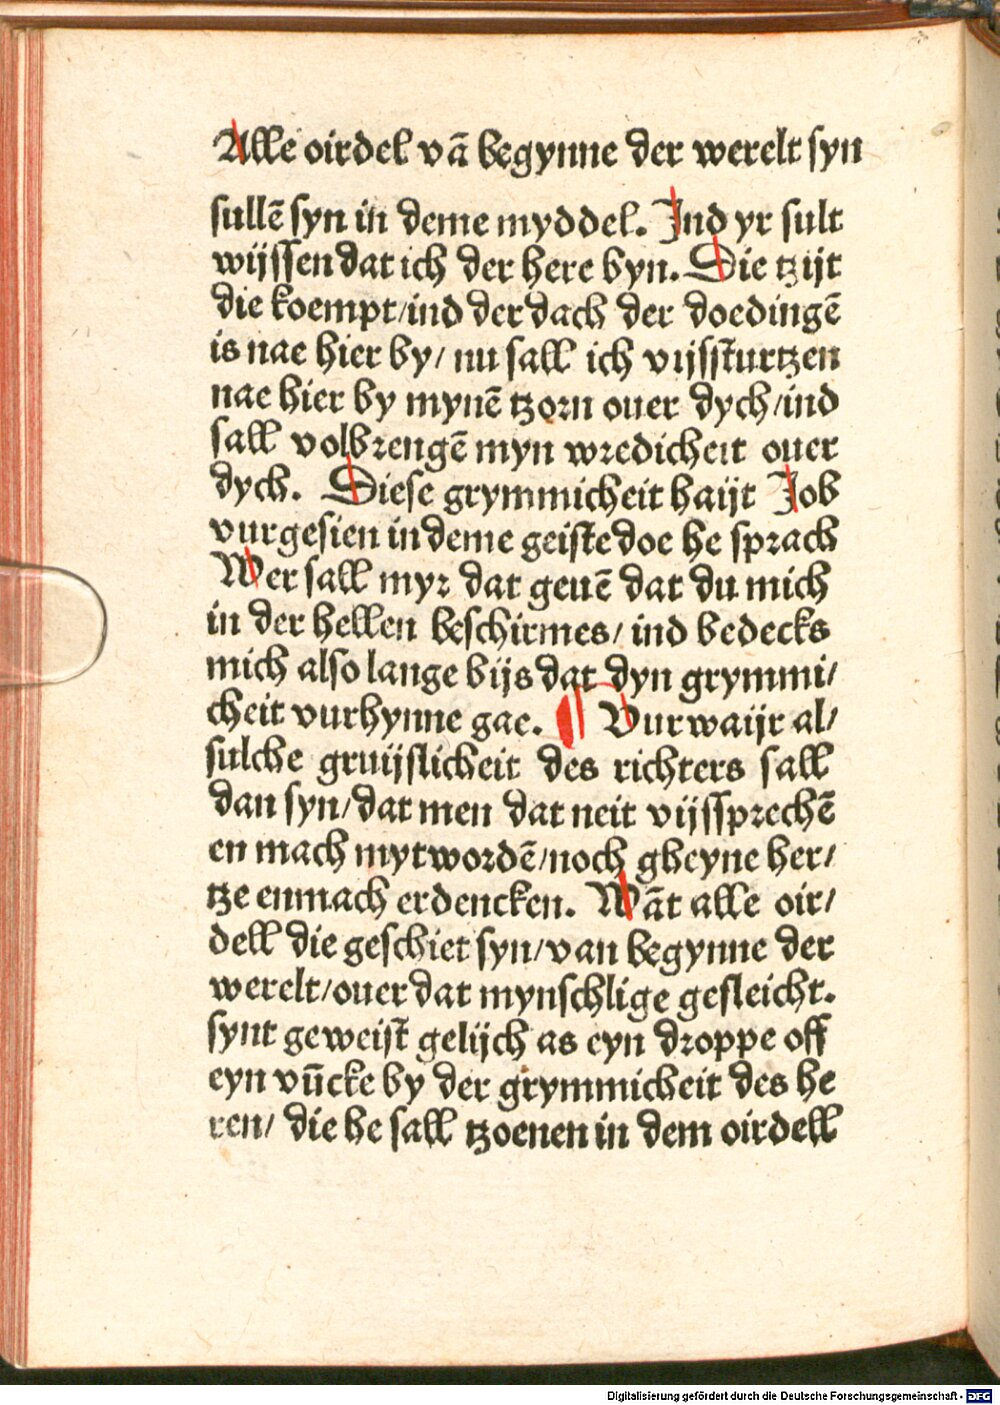 Alle oirdel vā begynne der werelt syn
sullē syn in deme myddel. Ind yr sult
wijssen dat ich der here byn. Die tzijt
die koempt/ind der dach der doedingē
is nae hier by/ nu sall ich vijssturtzen
nae hier by mynē tzorn ouer dych/ind
sall volbrengē myn wredicheit ouer
dych. Diese grymmicheit haijt Job
vurgesien in deme geiste doe he sprach
Wer sall myr dat geuē dat du mich
in der hellen beschirmes/ ind bedecks
mich also lange bijs dat dyn grymmi/
cheit vurhynne gae. ¶ Vurwaijr al/
sulche gruijslicheit des richters sall
dan syn/dat men dat neit vijssprechē
en mach myt wordē/noch gheyne her/
tze enmach erdencken. Wāt alle oir/
dell die geschiet syn/van begynne der
werelt/ouer dat mynschlige gesleicht.
synt geweist gelijch as eyn droppe off
eyn vūcke by der grymmicheit des he
ren/ die he sall tzoenen in dem oirdell
Digitalisierung gefördert durch die Deutsche Forschungsgemeinschaft - DFG